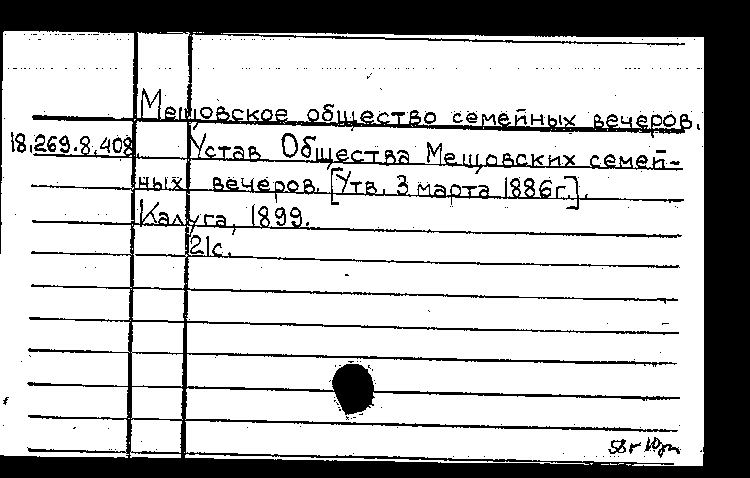 Мещовское общество семейных вечеров.
18.269.8.408 Устав Общества Мещовских семей-
ных вечеров. [Утв. 3 марта 1886г.].
Калуга, 1899.
21с.
58г